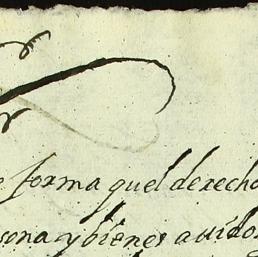 forma quel derecho
sona y bienes auido